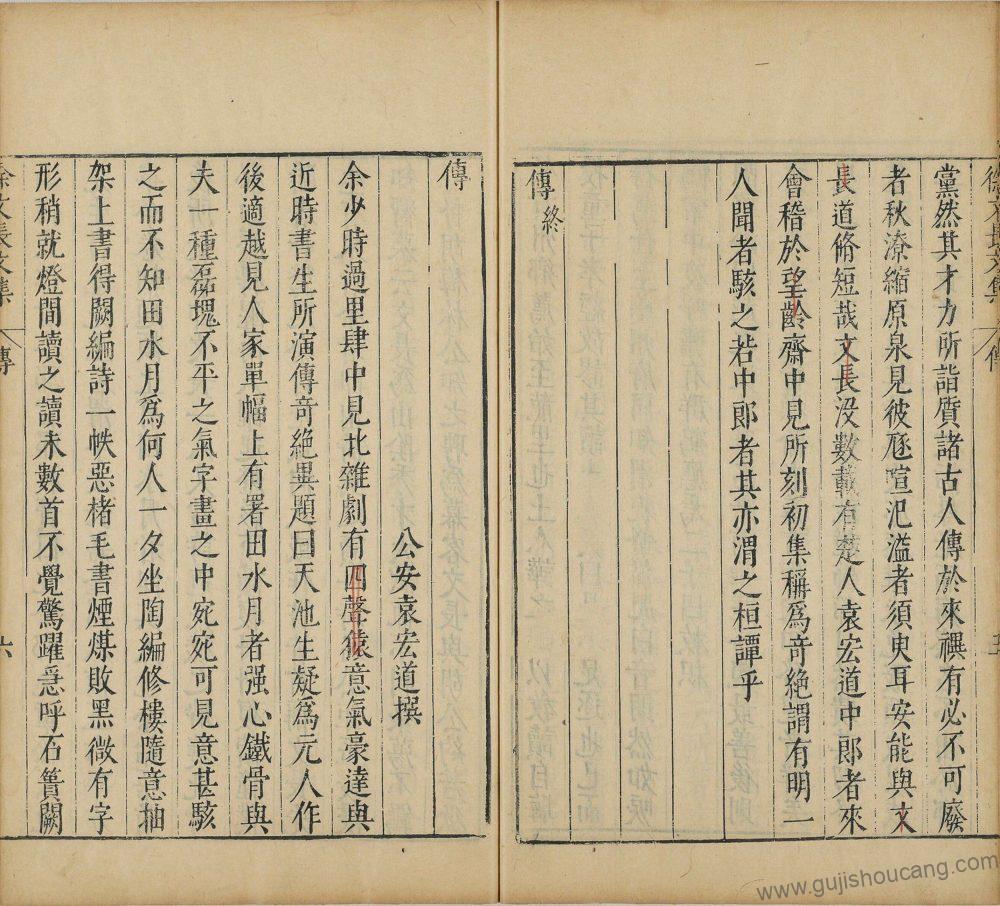 徐文長文集 傳 五
黨然其才力所詣質諸古人傳於來禩有必不可廢
者秋潦縮原泉見彼豗喧汜溢者須臾耳安能與文
長道脩短哉文長没數載有楚人袁宏道中郎者來
會稽於望齡齋中見所刻初集稱爲竒絶謂有明一
人聞者駭之若中郎者其亦渭之桓譚乎
傳終
傳
公安袁宏道撰
余少時過里肆中見北雜劇有四聲猿意氣豪達與
近時書生所演傳竒絶異題曰天池生疑爲元人作
後適越見人家單幅上有署田水月者强心鐵骨與
夫一種磊塊不平之氣字畫之中宛宛可見意甚駭
之而不知田水月爲何人一夕坐陶編修樓隨意抽
架上書得闕編詩一帙惡楮毛書煙煤敗黑微有字
形稍就燈間讀之讀未數首不覺驚躍急呼石簣闕
徐文長文集 傳 六
www.gujishoucang.com